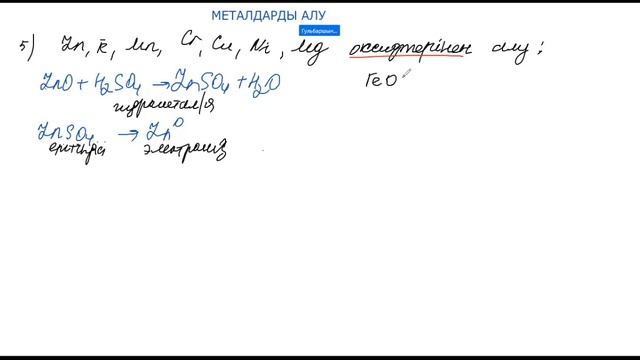 МЕТАЛДАРДЫ АЛУ
Гульбаршин...
5) Zn, Fe, Mn, Cr, Cu, Ni, Mg оксидтерінен алу:
ZnO + H2SO4 → ZnSO4 + H2O FeO
гидрометал/я
ZnSO4 → Zn0
ерітінді электролиз